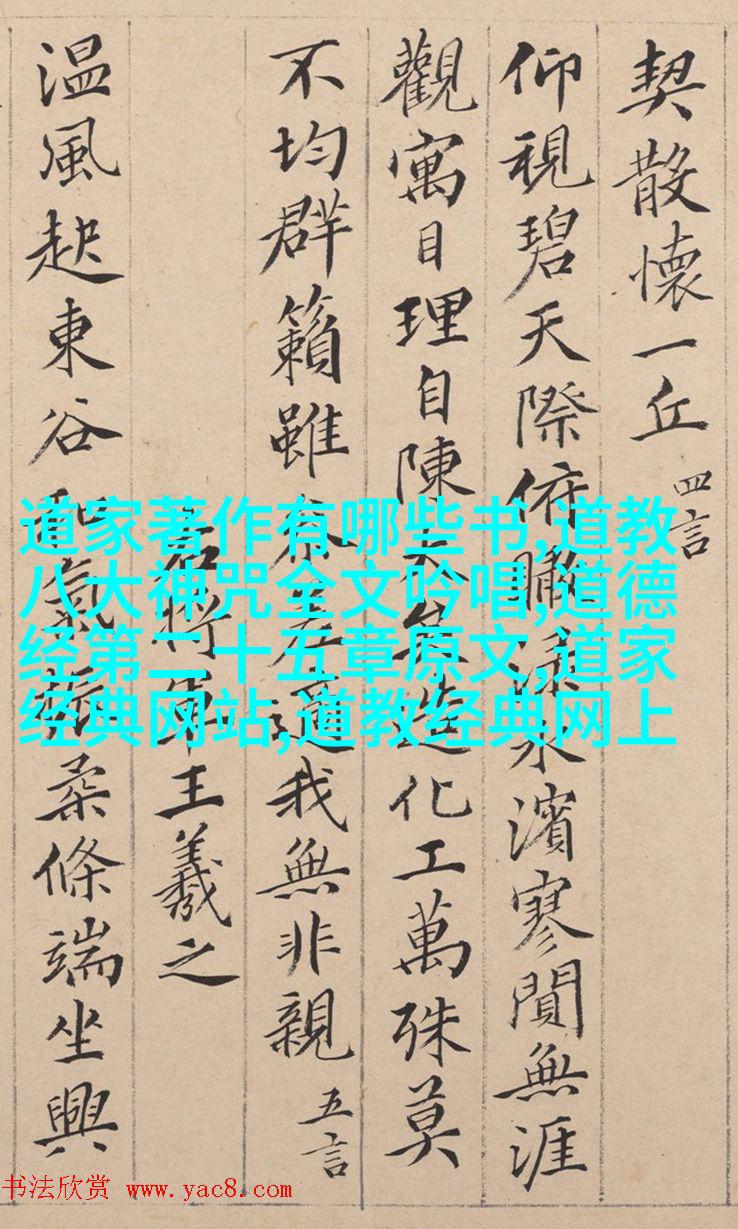 契散懷一丘 四言
仰視碧天際俯瞰淥水濱寥閴無涯
觀寓目理自陳大矣造化工萬殊莫
不均群籟雖參差適我無非親 五言
右將軍王羲之
温風起東谷和氣振柔條端坐興
道家著作有哪些书,道教
八大神咒全文吟唱,道德
经第二十五章原文,道家
经典网站,道教经典网上
书法欣赏 www.yac8.com